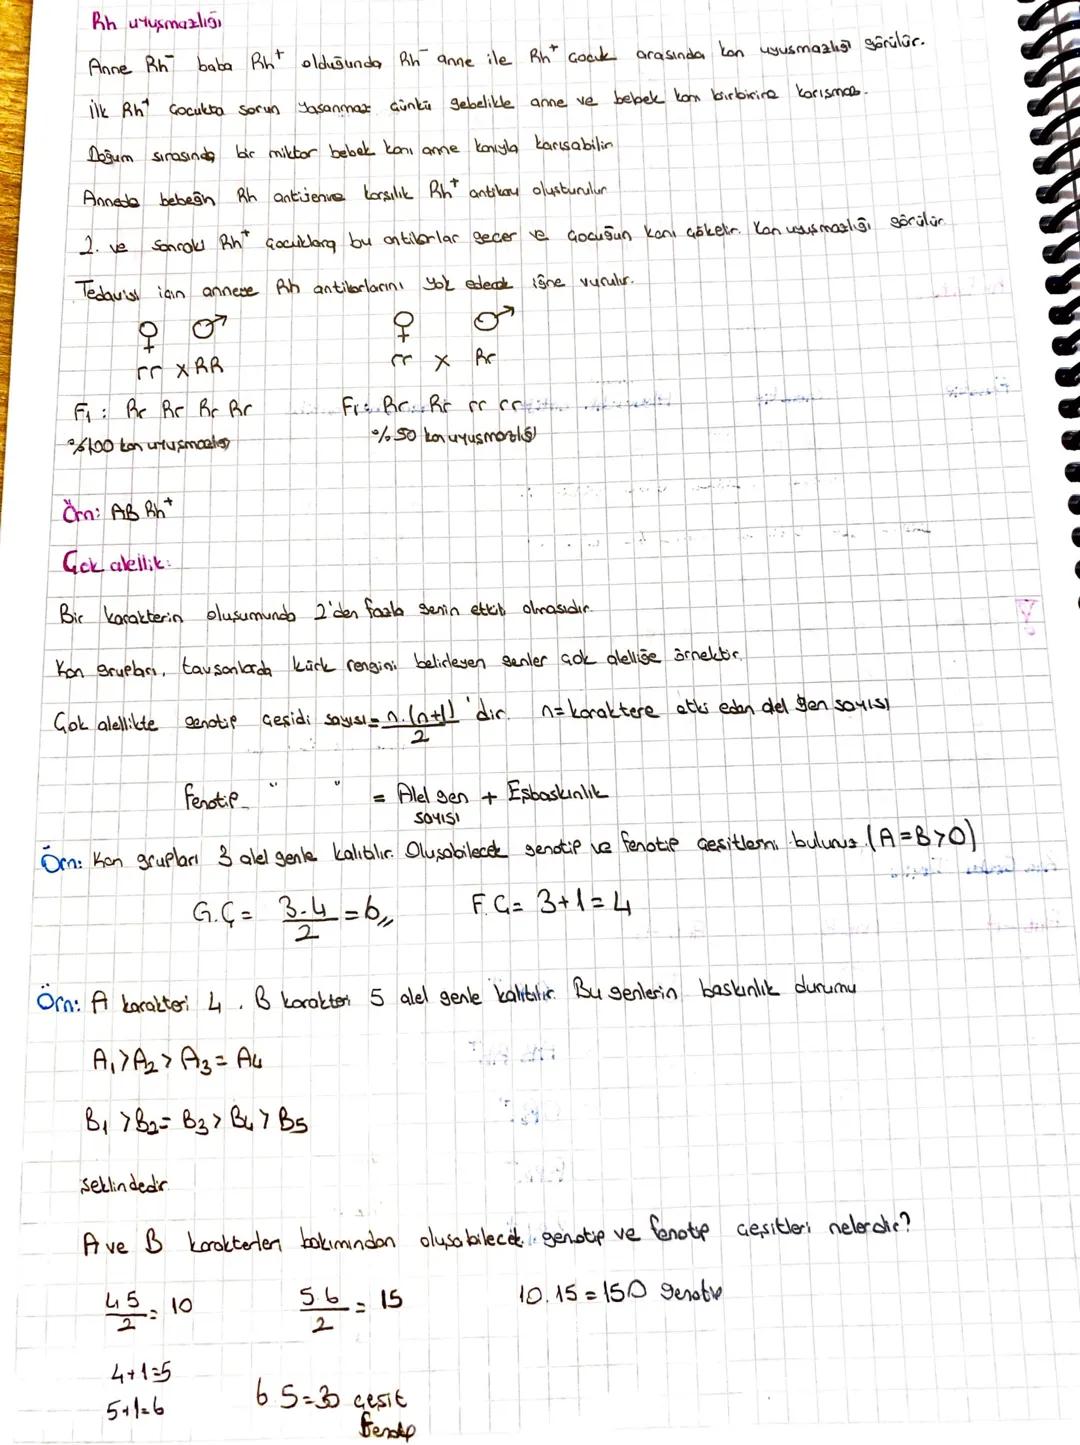 Rh uyuşmazlığı
Anne Rh⁻ baba Rh⁺ olduğunda Rh⁻ anne ile Rh⁺ çocuk arasında kan uyuşmazlığı görülür.
İlk Rh⁺ çocukta sorun yaşanmaz çünkü gebelikte anne ve bebek kanı birbirine karışmaz.
Doğum sırasında bir miktar bebek kanı anne kanıyla karışabilir
Annede bebeğin Rh antijenine karşılık Rh⁺ antikoru oluşturulur
2. ve sonraki Rh⁺ çocuklara bu antikorlar geçer ve çocuğun kanı çökelir. Kan uyuşmazlığı görülür
Tedavisi için anneye Rh antikorlarını yok edecek iğne vurulur.
♀ ♂ ♀ ♂
rr x RR rr x Rr
F₁: Rr Rr Rr Rr F₁: Rr Rr rr rr
%100 kan uyuşmazlığı %50 kan uyuşmazlığı
Örn: AB Rh⁺
Çok alellik:
Bir karakterin oluşumunda 2'den fazla genin etkili olmasıdır.
Kan grupları, tavşanlarda kürk rengini belirleyen genler çok alelliğe örnektir.
Çok alellikte genotip çeşidi sayısı = n.(n+1)/2 'dir. n = karaktere etki eden alel gen sayısı
fenotip " " = Alel gen sayısı + Eşbaskınlık
Örn: Kan grupları 3 alel genle kalıtılır. Oluşabilecek genotip ve fenotip çeşitlerini bulunuz. (A=B>0)
G.Ç = 3.4/2 = 6,, F.Ç = 3+1=4
Örn: A karakteri 4, B karakteri 5 alel genle kalıtılır. Bu genlerin baskınlık durumu
A₁>A₂>A₃=A₄
B₁>B₂=B₃>B₄>B₅
şeklindedir
A ve B karakterleri bakımından oluşabilecek genotip ve fenotip çeşitleri nelerdir?
4.5/2 = 10 5.6/2 = 15 10.15=150 genotip
4+1=5
5+1=6 6.5=30 çeşit
fenotip